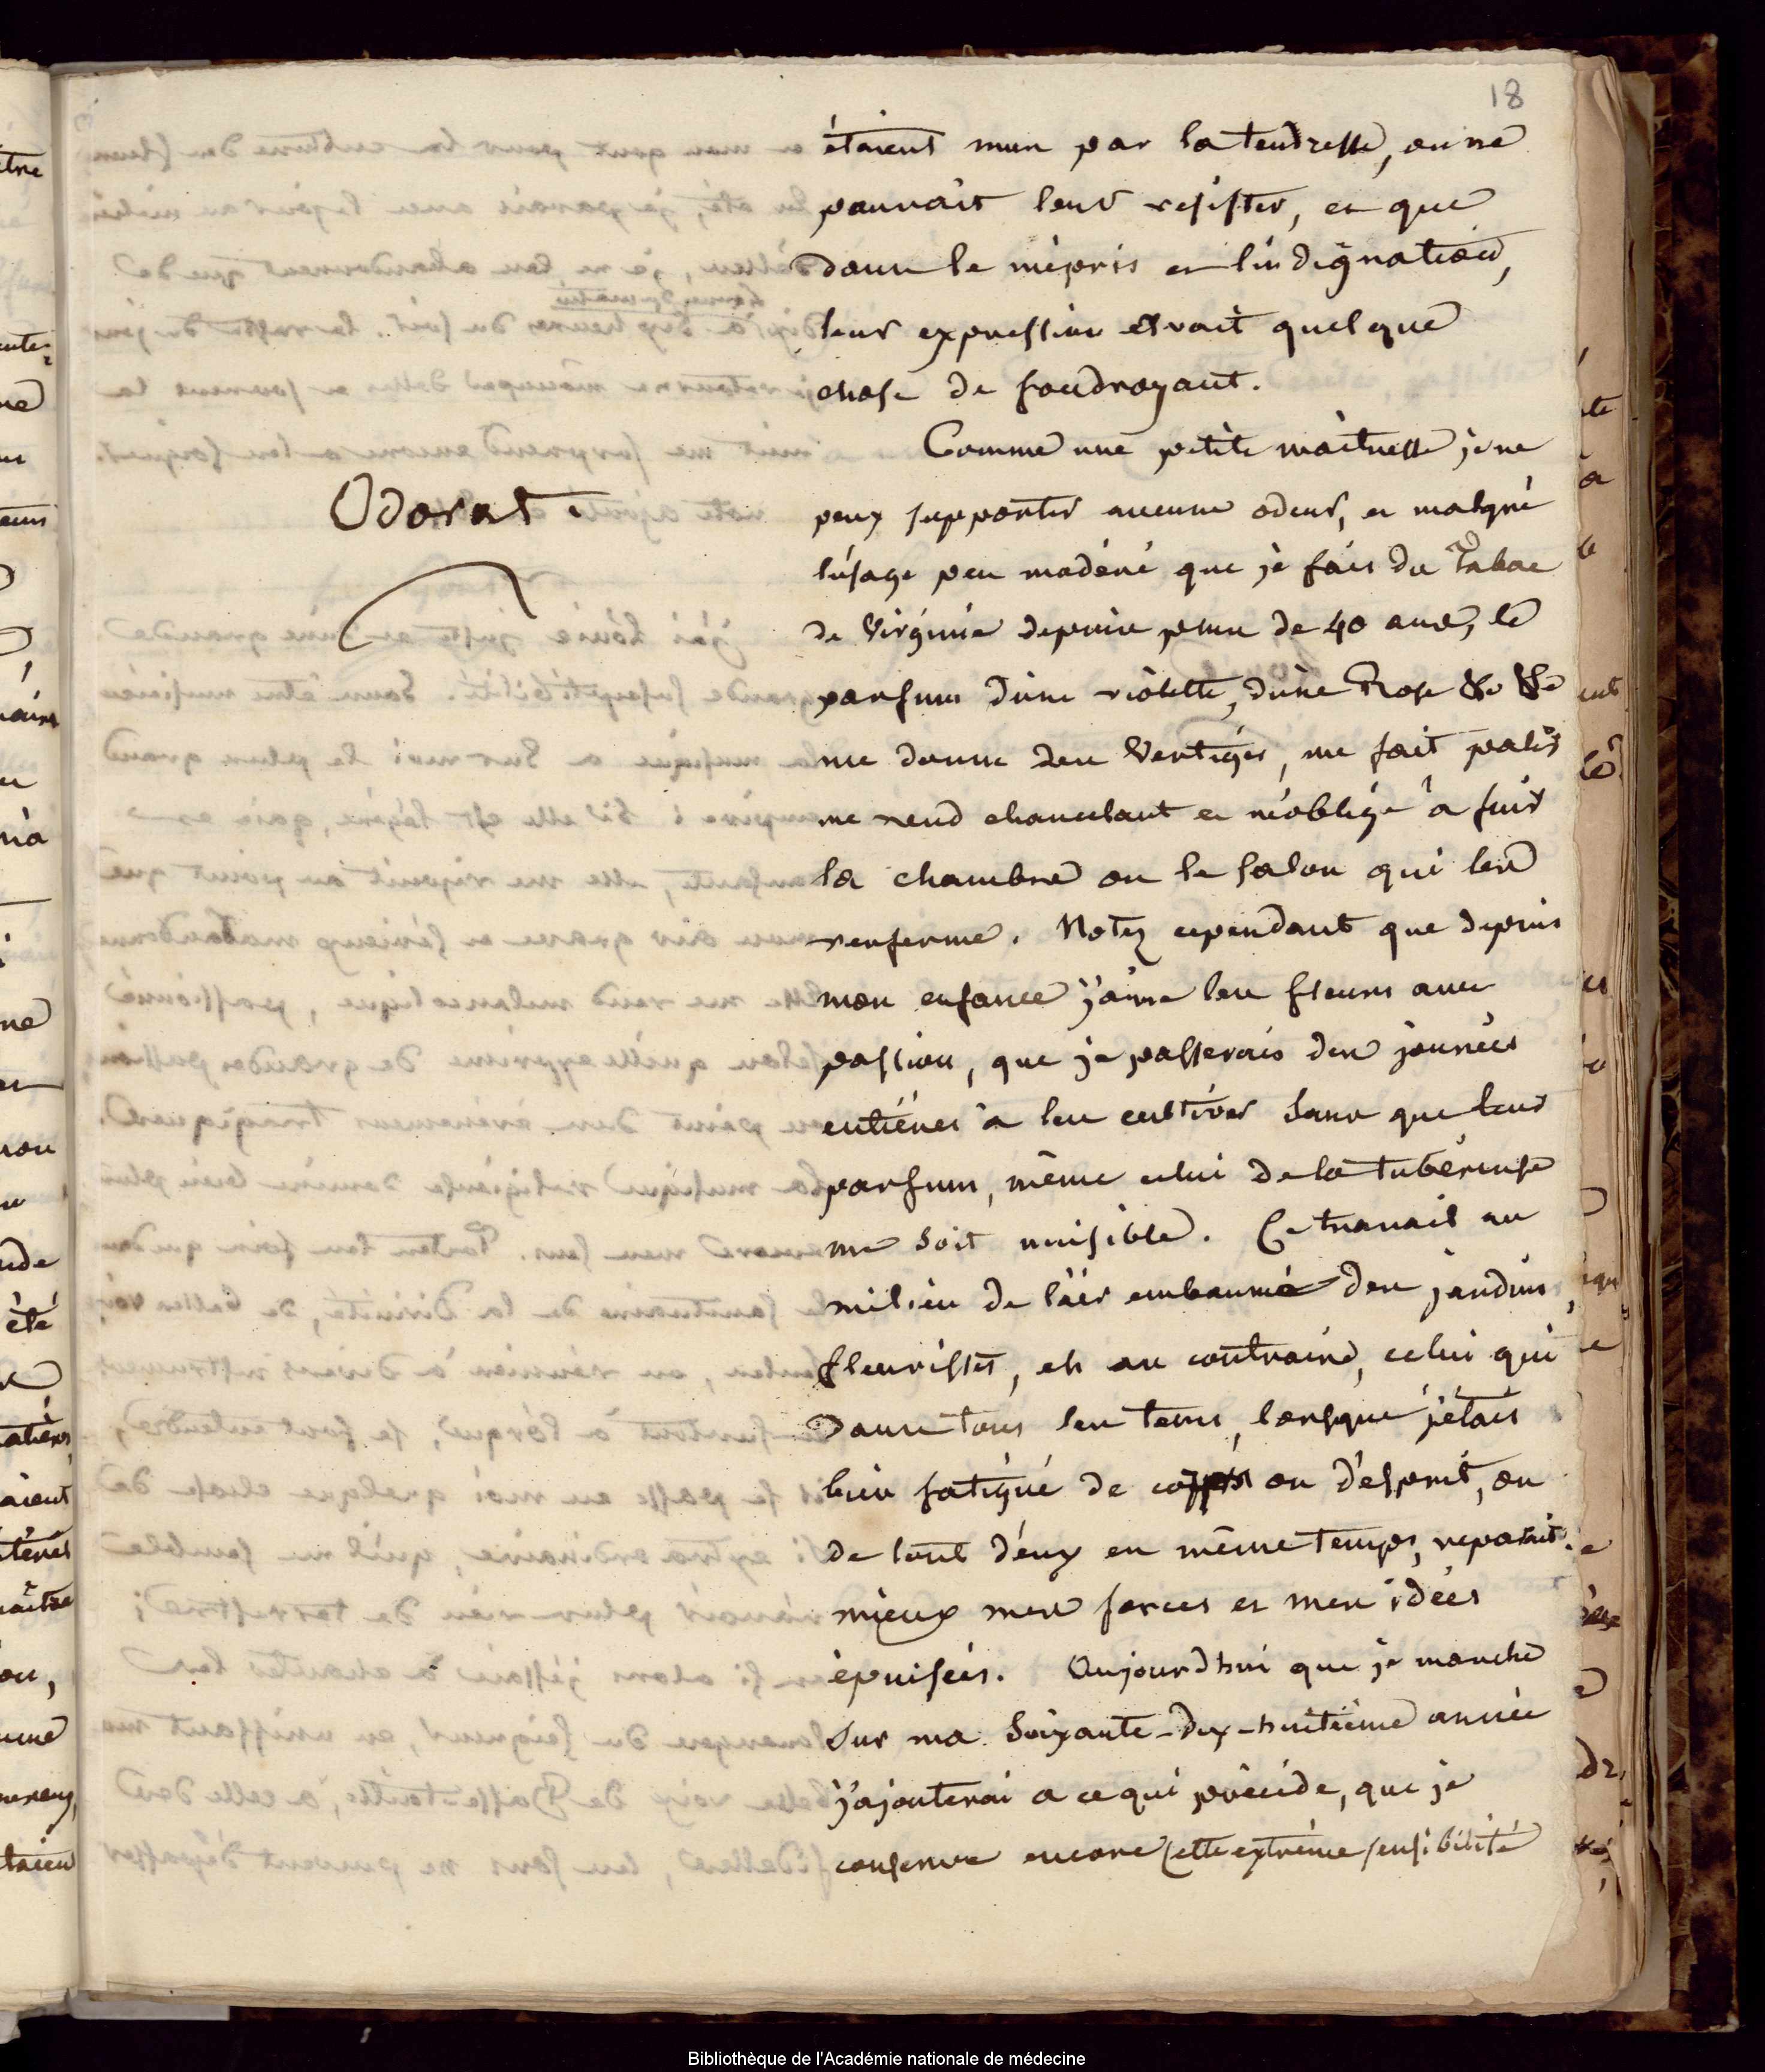 18
étaient mus par la tendresse, on ne
pouvait leur resister, et que
dans le mépris et l'indignation,
leur expression avait quelque
chose de foudroyant.
Odorat.
Comme une petite maitresse je ne
peux supporter aucune odeur, et malgré
l'usage peu modéré que je fais du Tabac
de Virginie depuis plus de 40 ans, le
parfum d'une violette, d'une Rose &c &c
me donne des Vertiges, me fait palir
me rend chancelant et m'oblige à fuir
la chambre ou le salon qui les
renferme. Notez cependant que depuis
mon enfance j'aime les fleurs avec
passion, que je passerais des journées
entières à les cultiver sans que leur
parfum, même celui de la tubéreuse
me soit nuisible. Ce travail au
milieu de l'air embaumé des jardins
fleuristes, est au contraire, celui qui
dans tous les tems, lorsque j'étais
bien fatigué de corps ou d'esprit, ou
de tout d'eux en même temps, reparait
mieux mes forces et mes idées
épuisées. Aujourdhui que je marche
sur ma Soixante-dix-huitième année
j'ajouterai a ce qui précède, que je
conserve encore cette extrême sensibilité
Bibliothèque de l'Académie nationale de médecine